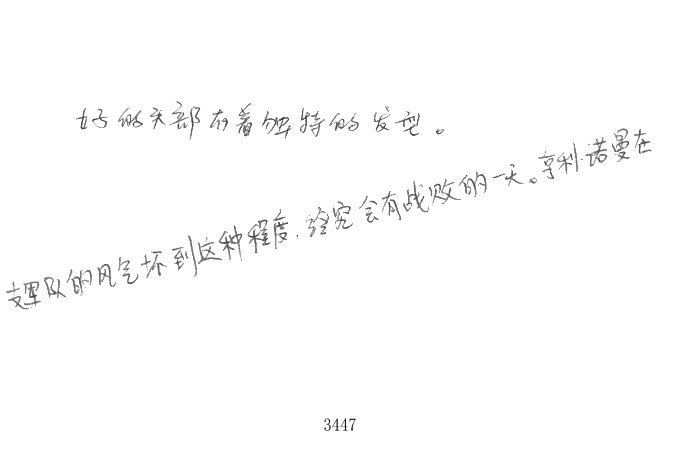 好的头部有着独特的发型。
这里队的风气坏到这种程度,终究会有战败的一天。亨利·诺曼在
3447